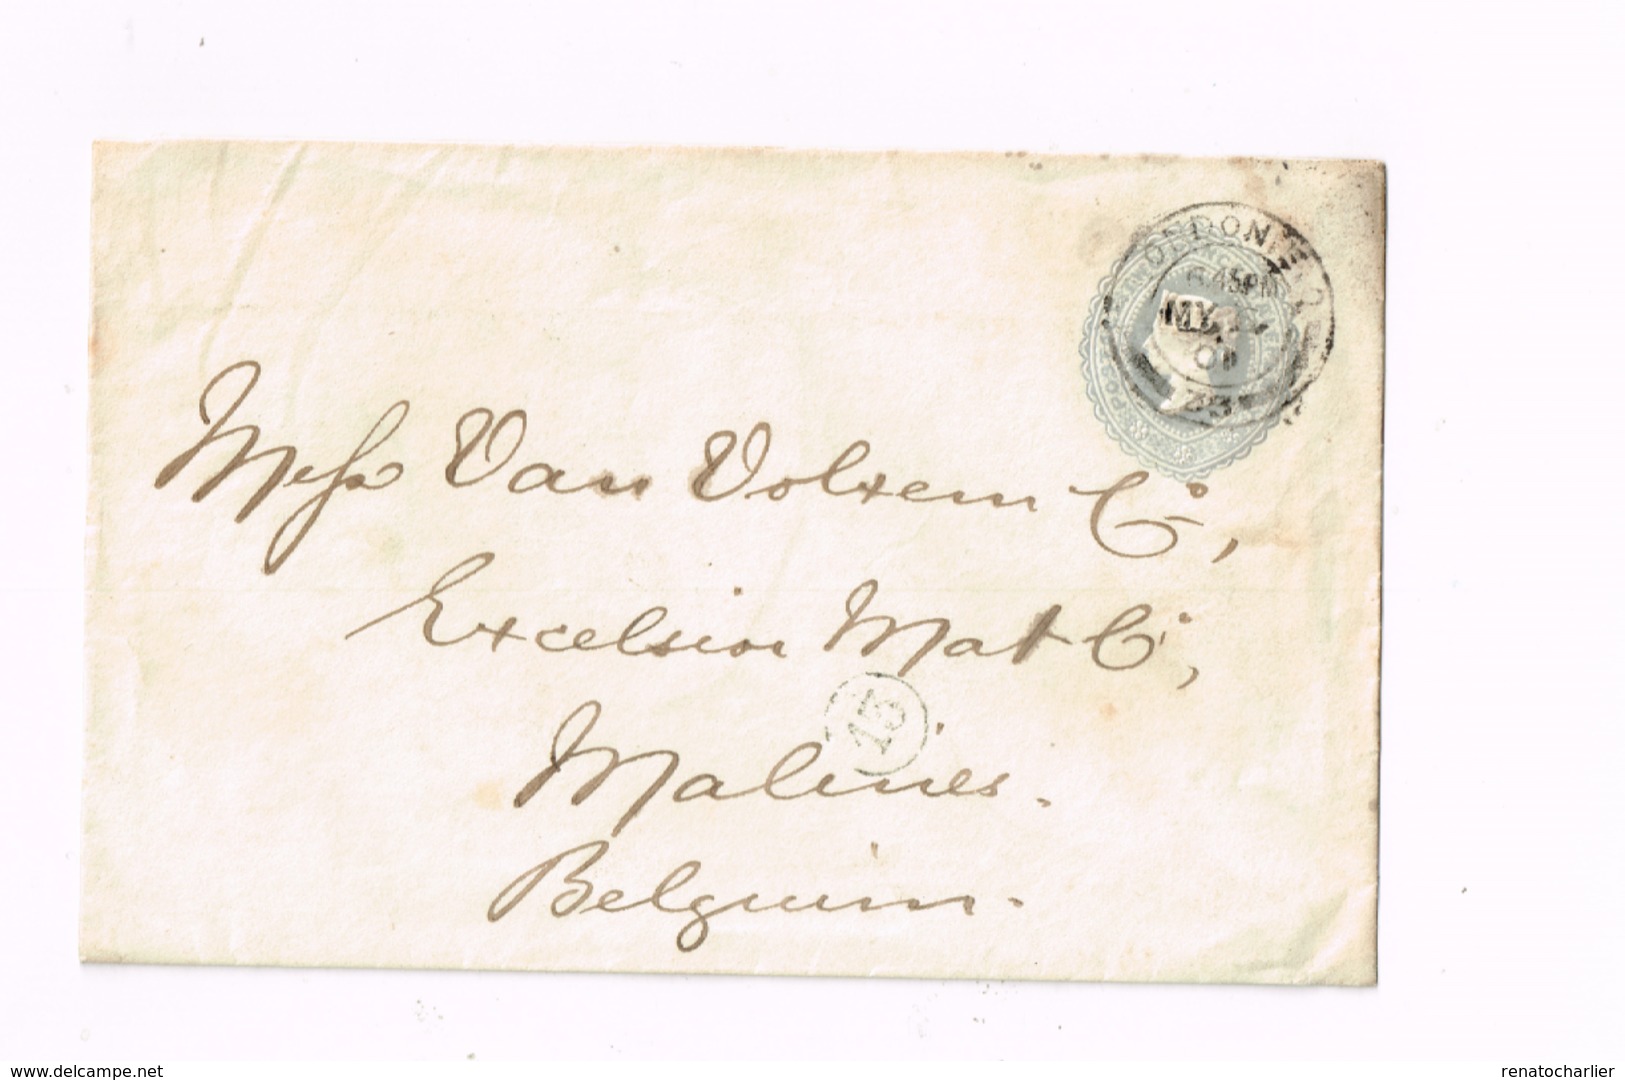 LONDON E.C
6.45PM
MY
01
Mess Van Volxem & Co,
Excelsior Mat Co,
15
Malines.
Belguim.
www.delcampe.net
renatocharlier